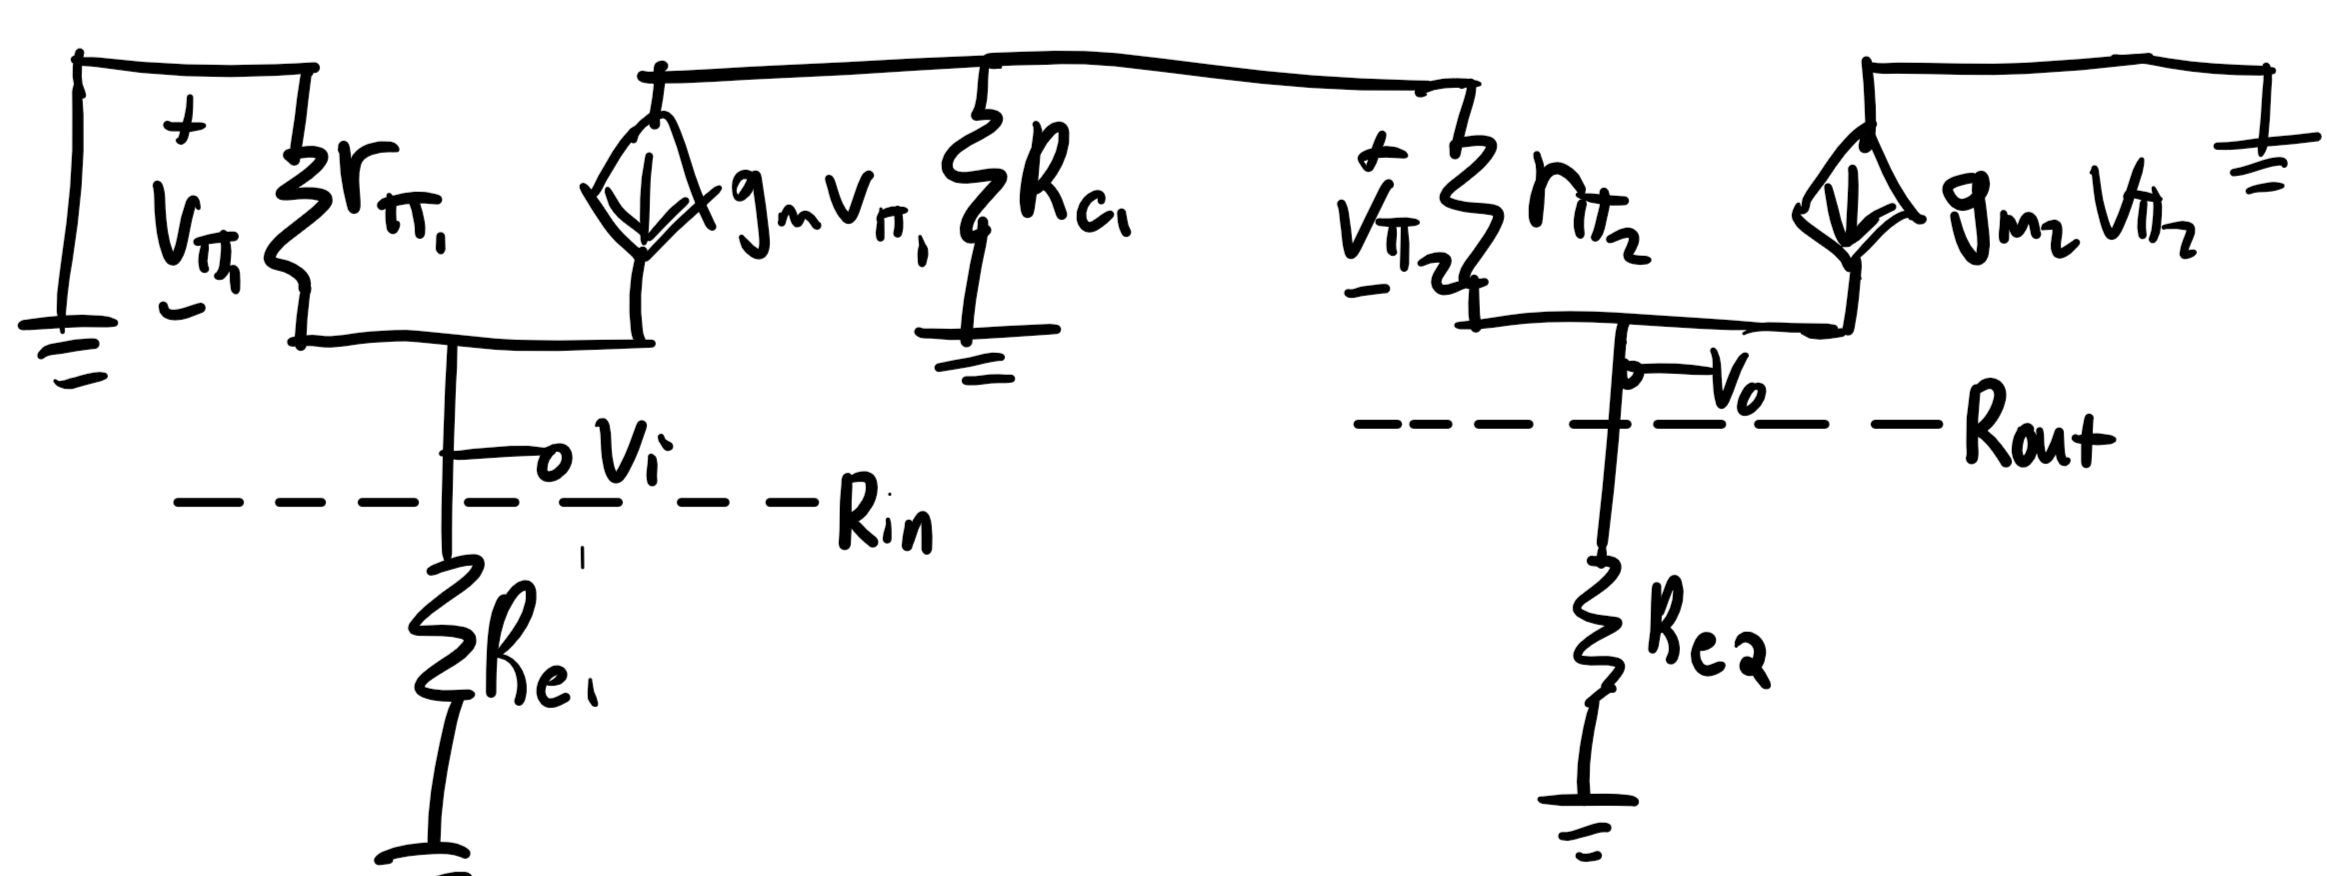 +
Vπ1
-
rπ1
gmVπ1
RC1
+
Vπ2
-
rπ2
gm2Vπ2
Vi
Rin
Re1
Vo
Rout
Re2